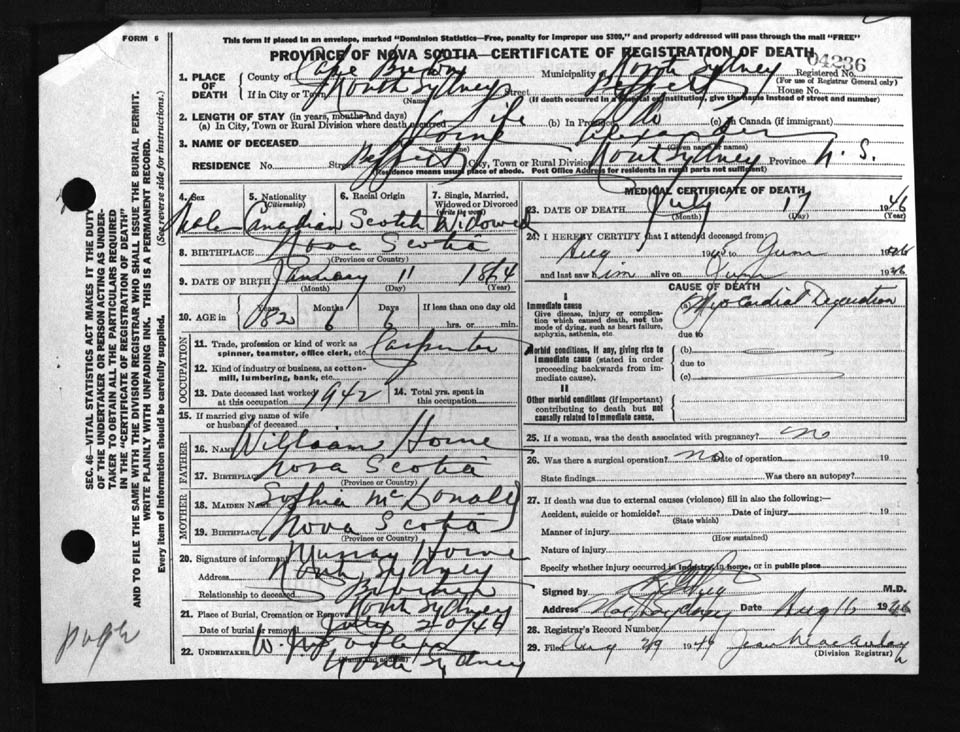 FORM 6
This form if placed in an envelope, marked "Dominion Statistics—Free, penalty for improper use $300," and properly addressed will pass through the mail "FREE"
PROVINCE OF NOVA SCOTIA—CERTIFICATE OF REGISTRATION OF DEATH
04236
1. PLACE OF DEATH County of Cape Breton Municipality North Sydney Registered No.
(For use of Registrar General only)
If in City or Town North Sydney Street House No.
(Name) (If death occurred in a hospital or institution, give the name instead of street and number)
2. LENGTH OF STAY (in years, months and days)
(a) In City, Town or Rural Division where death occurred Life (b) In Province (c) in Canada (if immigrant)
3. NAME OF DECEASED Horne Alexander
(Surname) (Given name or names)
RESIDENCE No. Street City, Town or Rural Division North Sydney Province N. S.
(Residence means usual place of abode. Post Office Address for residents in rural parts not sufficient)
4. Sex 5. Nationality (Citizenship) 6. Racial Origin 7. Single, Married, Widowed or Divorced (write the word)
Male Canadian Scotch Widowed
8. BIRTHPLACE Nova Scotia
(Province or Country)
9. DATE OF BIRTH January 11 1864
(Month) (Day) (Year)
10. AGE in Years Months Days If less than one day old
82 6 6 hrs. or min.
OCCUPATION
11. Trade, profession or kind of work as spinner, teamster, office clerk, etc. Carpenter
12. Kind of industry or business, as cotton-mill, lumbering, bank, etc.
13. Date deceased last worked at this occupation 1942 14. Total yrs. spent in this occupation
15. If married give name of wife or husband of deceased
FATHER
16. NAME William Horne
17. BIRTHPLACE Nova Scotia
(Province or Country)
MOTHER
18. MAIDEN NAME Sophia McDonald
19. BIRTHPLACE Nova Scotia
(Province or Country)
20. Signature of informant Murray Horne
Address North Sydney
Relationship to deceased
21. Place of Burial, Cremation or Removal North Sydney
Date of burial or removal July 20 46
22. UNDERTAKER W.
North Sydney
MEDICAL CERTIFICATE OF DEATH
23. DATE OF DEATH July 17 1946
(Month) (Day) (Year)
24. I HEREBY CERTIFY that I attended deceased from:
Aug 194 to June 1946
and last saw him alive on June 1946
CAUSE OF DEATH
I
Immediate cause Myocardial Degeneration
Give disease, injury or complication which caused death, not the mode of dying, such as heart failure, asphyxia, asthenia, etc.
due to
Morbid conditions, if any, giving rise to immediate cause (stated in order proceeding backwards from immediate cause).
(b)
due to
(c)
II
Other morbid conditions (if important) contributing to death but not causally related to immediate cause.
25. If a woman, was the death associated with pregnancy? no
26. Was there a surgical operation? no Date of operation 19
State findings Was there an autopsy?
27. If death was due to external causes (violence) fill in also the following:—
Accident, suicide or homicide? Date of injury 19
(State which)
Manner of injury
(How sustained)
Nature of injury
Specify whether injury occurred in industry, in home, or in public place
Signed by M.D.
Address Date Aug 16 1946
28. Registrar's Record Number
29. Filed Aug 29 1946
(Division Registrar)
SEC. 46—VITAL STATISTICS ACT MAKES IT THE DUTY
OF THE UNDERTAKER OR PERSON ACTING AS UNDERTAKER TO OBTAIN ALL THE PARTICULARS REQUIRED
IN THE "CERTIFICATE OF REGISTRATION OF DEATH"
AND TO FILE THE SAME WITH THE DIVISION REGISTRAR WHO SHALL ISSUE THE BURIAL PERMIT.
WRITE PLAINLY WITH UNFADING INK. THIS IS A PERMANENT RECORD.
Every item of information should be carefully supplied. (See reverse side for instructions.)